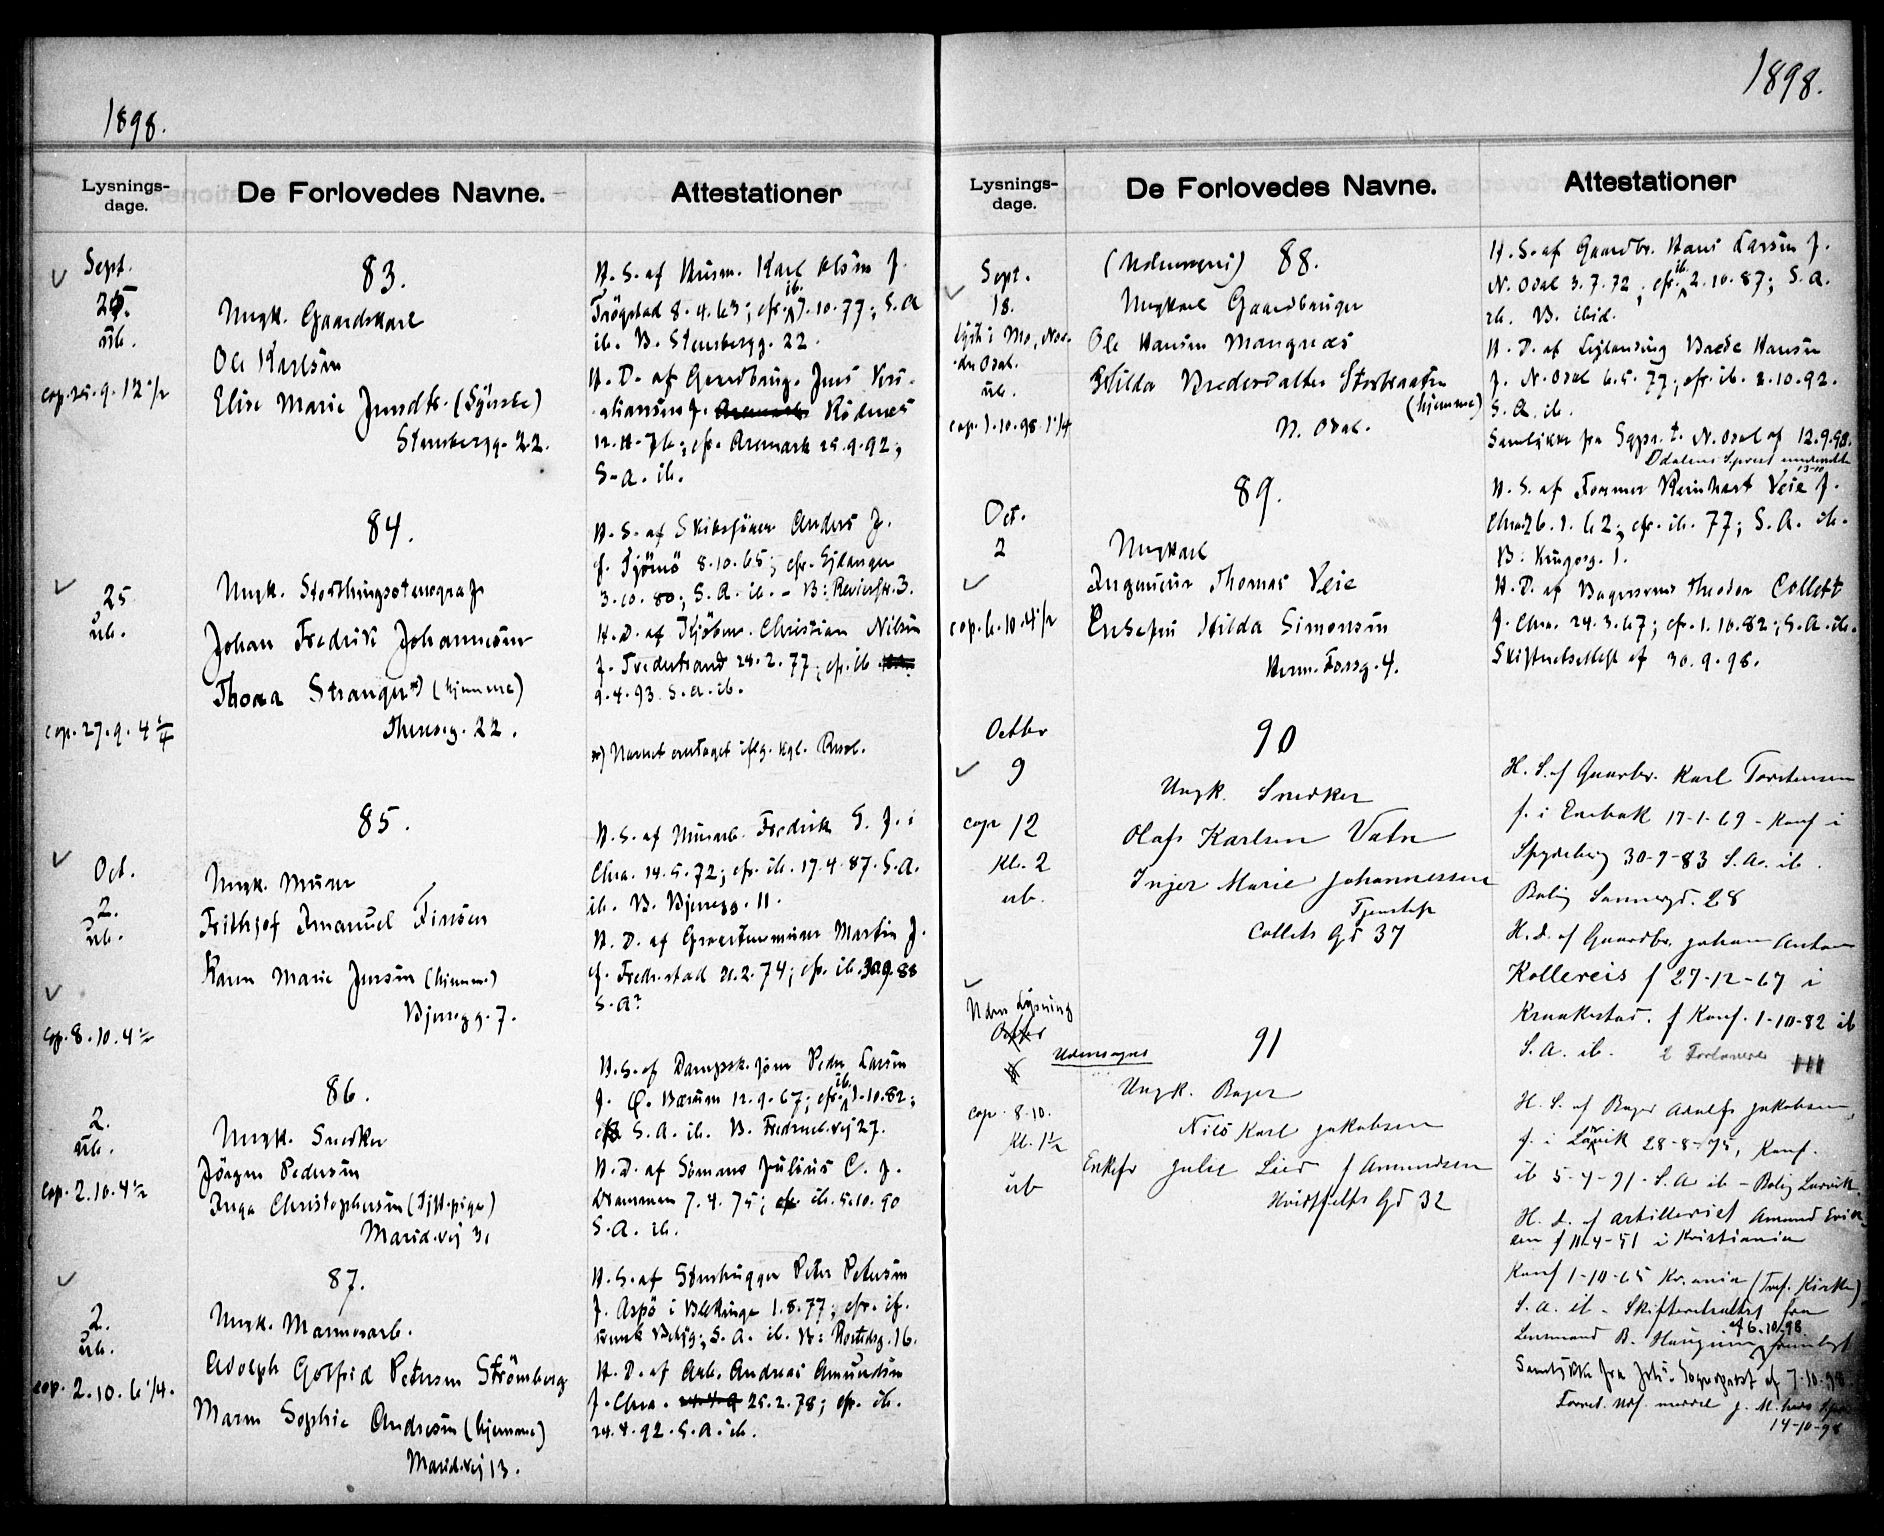 1898.
Lysnings-
dage.
De Forlovedes Navne.
Attestationer
Sept.
25.
üb.
cop. 25.9.12 1/2
83.
Ungk. Gaardskarl
Ole Karlsen
Elise Marie Jensdtr. (Syerske)
Stensbergg. 22.
H. S. af Husm. Karl Olsen f.
Trögstad 8.4.63; cfr. ib. 7.10.77; S. A
ib. B. Stensbergg. 22.
H. D. af Gaardbrug. Jens Kris-
tiansen f. Rödenes
12.11.76; cfr. Aremark 25.9.92;
S. A. ib.
25
üb.
cop. 27.9.4
84.
Ungk. Storthingsstenograf
Johan Fredrik Johannesen
Thora Stranger *) (hjemme)
Theresg. 22.
H. S. af Skibsfören Anders J.
f. Tjömö 8.10.65; cfr. Eidanger
3.10.80; S. A. ib. - B: Revierstr. 3.
H. D. af Kjöbm. Christian Nilsen
f. Fredriksand 24.2.77; cfr. ib
9.4.93. S. A. ib.
*) Navnet antaget iflg. kgl. Resol.
Oct.
2.
üb.
cop. 8.10.4 1/2
85.
Ungk. Murer
Frithjof Emanuel Finsen
Karen Marie Jensen (hjemme)
Bjerregg. 7.
H. S. af Murarb. Fredrik F. f. i
Chra. 14.5.72; cfr. ib. 17.4.87. S. A.
ib. B. Bjerregg. 11.
H. D. af Graastensmurer Martin J.
f. Fredr.stad 21.2.74; cfr. ib. 30.9.88
S. A?
2.
üb.
cop. 2.10.4 1/2
86.
Ungk. Snedker
Jörgen Pedersen
Inga Christophersen (Tjst.pige)
Marid.vej 3,
H. S. af Dampsk.förer Peder Larsen
f. Ø. Bærum 12.9.67; cfr. ib. 1.10.82;
S. A. ib. B. Fredensb.vej 27.
H. D. af Sömand Julius C. f.
Drammen 7.4.75; cfr. ib. 5.10.90
S. A. ib.
2.
üb.
cop. 2.10.6 1/4.
87.
Ungk. Marmorarb.
Adolph Gotfrid Petersen Strömberg
Maren Sophie Andresen (hjemme)
Marid.vej 13.
H. S. af Stenhugger Peter Petersen
f. Aspö i Blekinge 1.8.77; cfr. if.
svensk Betyg; S. A. ib. B: Rostedsg. 16.
H. D. af Arb. Andreas Amundsen
f. Chra. 25.2.78; cfr. ib.
24.4.92. S. A. ib.
1898.
Lysnings-
dage.
De Forlovedes Navne.
Attestationer
Sept.
18.
lyst i Mo, Nor-
dre Odal.
üb.
cop. 1.10.98 1 1/4
(Udensogns) 88.
Ungkarl Gaardbruger
Ole Hansen Mangnæs
Hilda Storbraaten
(hjemme)
N. Odal.
H. S. af Gaardbr. Hans Larsen f.
N. Odal 3.7.72; cfr. ib. 2.10.87; S. A.
ib. B. ibid.
H. D. af Leilænding Brede Hansen
f. N. Odal 6.5.77; cfr. ib. 2.10.92.
S. A. ib.
Samtykke fra Sgpr. t. N. Odal af 12.9.98.
Odalens Sprest underrettet
13-10
Oct.
2
cop. 6.10.4 1/2
89.
Ungkarl
Ingeniør Thomas Veie
Enkefru Hilda Simonsen
Herm. Fossg. 4.
H. S. af Former Reinhart Veie f.
Chra 26.1.62; cfr. ib. 77; S. A. ib.
B: Krugesg. 1.
H. D. af Bagersvend Theodor Collett
f. Chra. 24.3.67; cfr. 1.10.82; S. A. ib.
Skifteretsattest af 30.9.98.
Octbr
9
cop 12
kl. 2
üb.
90
Ungk. Snedker
Olaf Karlsen Vatn
Inger Marie Johannessen
Tjenstepi
Collets Gd 37
H. S. af Gaardbr. Karl Torstensen
f. i Enebak 17-1-69 - Konf i
Spydeberg 30-9-83 S. A. ib.
Bolig Sannergd. 28
H. d. af Gaardbr. Johan Anton
Kollereis f 27-12-67 i
Kraakstad. f Konf. 1-10-82 ib
S. A. ib. 2 Forlovere
Uden Lysning
cop. 8-10.
kl. 1 1/2
üb
Udensogns
91
Ungk. Bager
Nils Karl Jakobsen
Enkefr Julie Lied f Amundsen
Hvidtfelts Gd 32
H. S. af Bager Adolf Jakobsen,
f. i Larvik 28-8-75, Konf.
ib 5-4-91. S. A ib - Bolig Larvik.
H. d. af Artillerist Amund Erik-
sen f 11-4-51 i Kristiania
Konf 1-10-65 Kr.ania (Tref. Kirke)
S. A. ib. Skifteretsattest fra
Lensmand B. Haugen
af 6.10.98.
Samtykke fra Joh. Sogneprest af 7-10-98
14-10-98